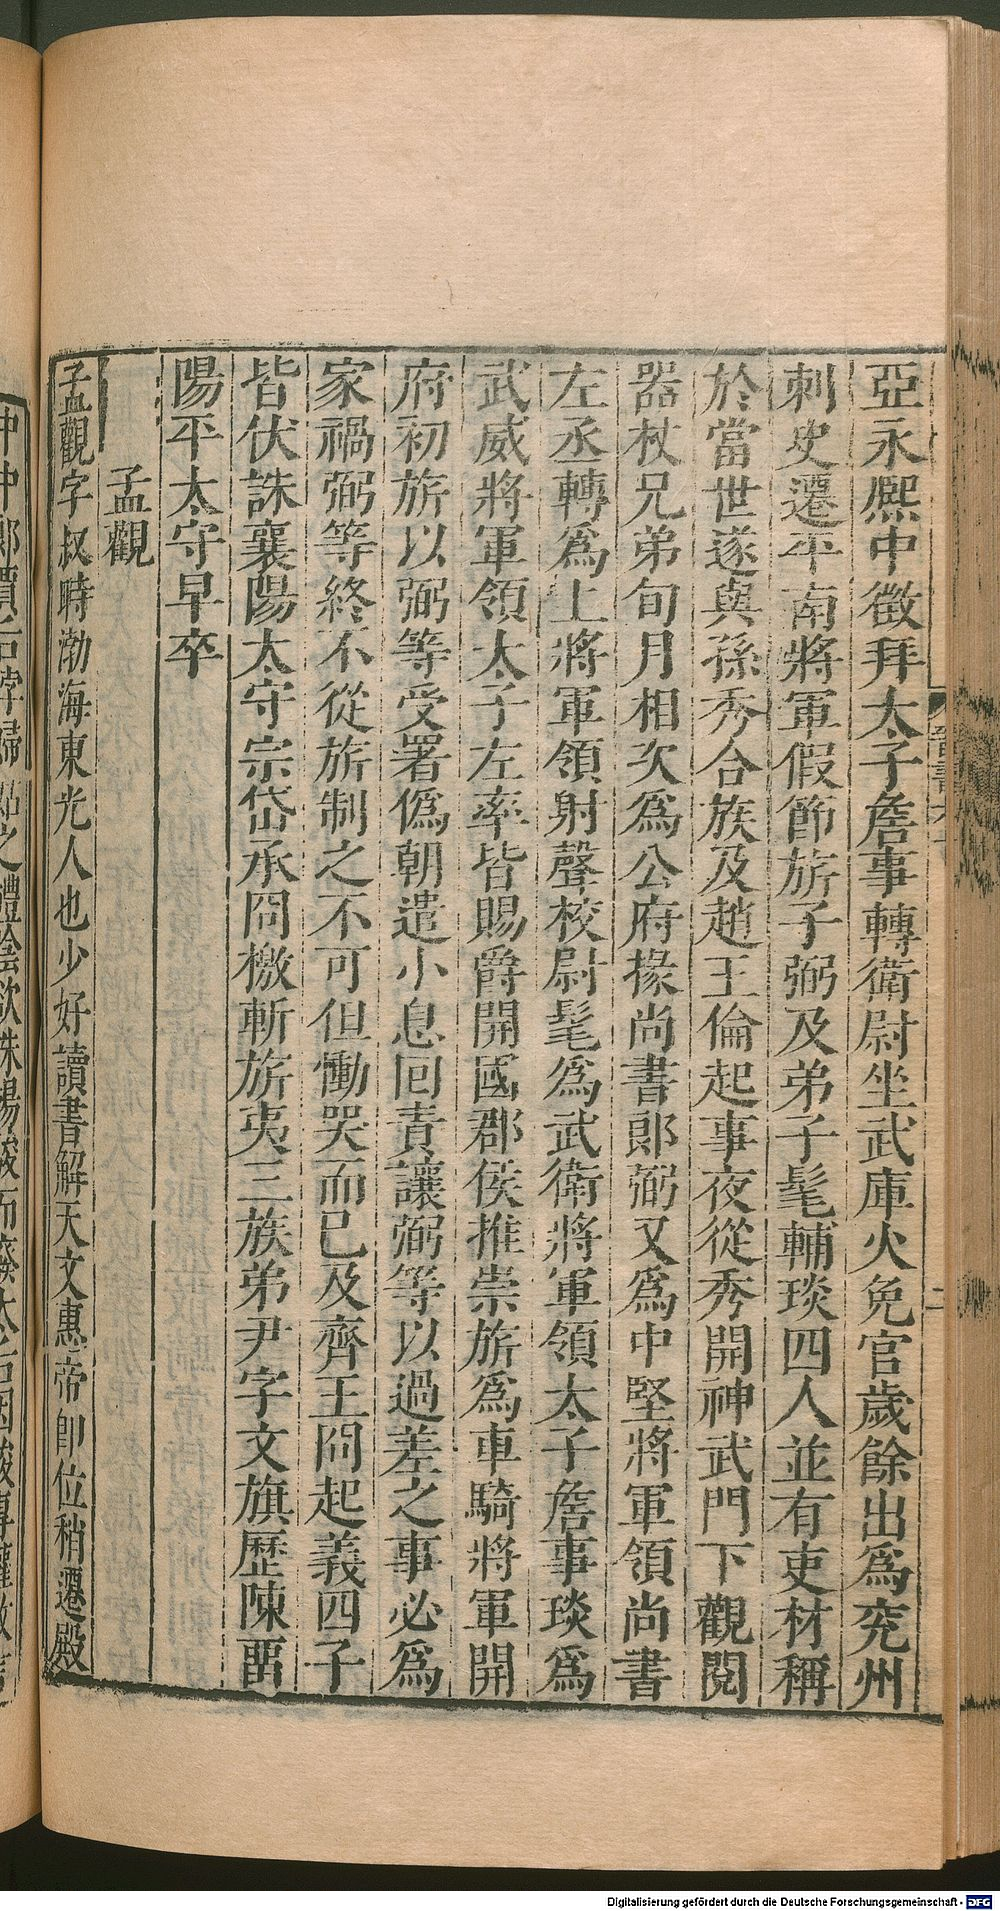 亞永熈中徵拜太子詹事轉衛尉坐武庫火免官歲餘出爲兖州
刺史遷平南將軍假節旂子弼及弟子髦輔琰四人並有吏材稱
於當世遂與孫秀合族及趙王倫起事夜從秀開神武門下觀閱
器杖兄弟旬月相次爲公府掾尚書郎弼又爲中堅將軍領尚書
左丞轉爲上將軍領射聲校尉髦爲武衛將軍領太子詹事琰爲
武威將軍領太子左率皆賜爵開國郡侯推崇旂爲車騎將軍開
府初旂以弼等受署僞朝遣小息回責讓弼等以過差之事必爲
家禍弼等終不從旂制之不可但慟哭而已及齊王冏起義四子
皆伏誅襄陽太守宗岱承冏檄斬旂夷三族弟尹字文旗歷陳畱
陽平太守早卒
孟觀
孟觀字叔時渤海東光人也少好讀書解天文惠帝卽位稍遷殿
Digitalisierung gefördert durch die Deutsche Forschungsgemeinschaft - DFG